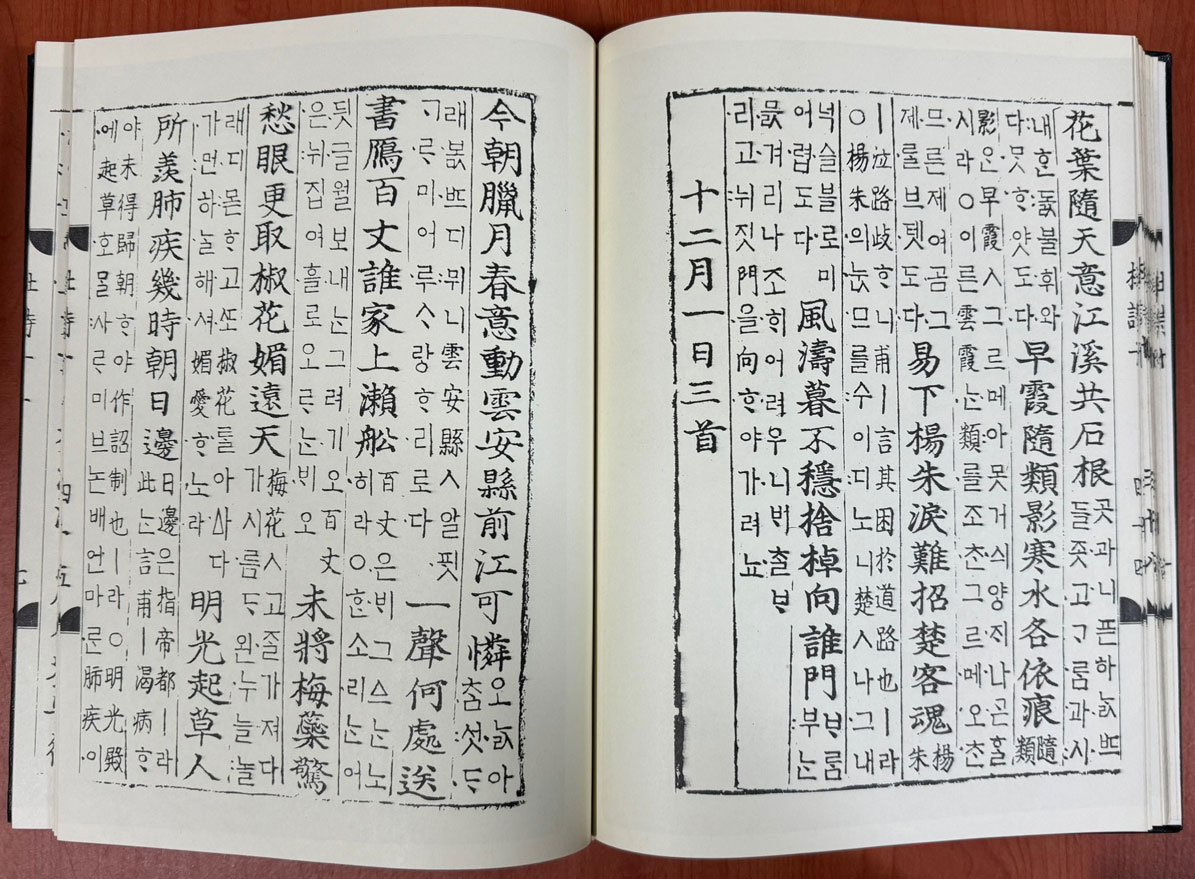 花葉隨天意江溪共石根 곳과니픈하ᄂᆞᆳᄠᅳ
들좃고ᄀᆞᄅᆞᆷ과시
내ᄒᆞᆫ돐불휘와
다ᄆᆞᆺᄒᆞ얏도다 早霞隨類影寒水各依痕 隨
類
影은早霞ㅅ그르메아못거싀양ᄌᆡ나ᄀᆞᆮᄒᆞᆯ
시라○이른雲霞ᄂᆞᆫ類ᄅᆞᆯ조ᄎᆞᆫ그르메오ᄎᆞᆫ
므른제여곰그
제ᄅᆞᆯ브텟도다 易下楊朱淚難招楚客魂 楊
朱
ㅣ泣路歧ᄒᆞ니甫ㅣ言其困於道路也ㅣ라
○楊朱의눉므를수이디노니楚人나그내
넉슬블로미
어렵도다 風濤暮不穩捨棹向誰門 ᄇᆞᄅᆞᆷ
부ᄂᆞᆫ
믌겨리나조ᄒᆡ어려우니ᄇᆡ츨ᄇᆞ
리고뉘짓門을向ᄒᆞ야가려뇨
十二月一日三首
今朝臘月春意動雲安縣前江可憐 오ᄂᆞᆳ아
ᄎᆞᆷ섯ᄃᆞ
래봆ᄠᅳ디뮈니雲安縣ㅅ알ᄑᆡᆺ
ᄀᆞᄅᆞ미어루ᄉᆞ랑ᄒᆞ리로다 一聲何處送
書鴈百丈誰家上瀨舩 百丈은ᄇᆡ그ᅀᅳᄂᆞᆫ노
히라○ᄒᆞᆫ소리ᄂᆞᆫ어
듸글월보내ᄂᆞᆫ그려기오百丈
은뉘집여흘로오ᄅᆞᄂᆞᆫᄇᆡ오 未將梅蘂驚
愁眼更取椒花媚遠天 梅花ㅅ고ᄌᆞᆯ가져다
가시름ᄃᆞ왼누늘놀
래디몯ᄒᆞ고ᄯᅩ椒花ᄅᆞᆯ아ᅀᅡ다
가먼하ᄂᆞᆯ해셔媚愛ᄒᆞ노라 明光起草人
所羨肺疾幾時朝日邊 日邊은指帝都ㅣ라
此ᄂᆞᆫ言甫ㅣ渴病ᄒᆞ
야未得歸朝ᄒᆞ야作詔制也ㅣ라○明光殿
에起草호ᄆᆞᆯ사ᄅᆞ미브논배언마ᄅᆞᆫ肺疾이